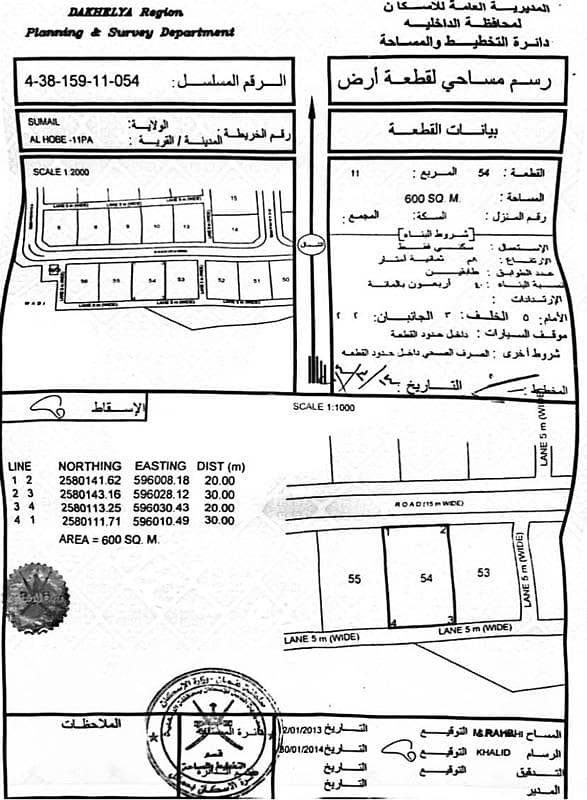 DAKHELYA Region
Planning & Survey Department
المديرية العامة للاسكان
لمحافظة الداخليه
دائرة التخطيط والمساحة
4-38-159-11-054 الرقم المسلسل:
رسم مساحي لقطعة أرض
SUMAIL الولاية:
AL HOBE -11PA المدينة / القرية : رقم الخريطة:
بيانات القطعة
SCALE 1:2000
القطعة : 54 المربع : 11
المساحة : 600 SQ. M.
رقم المنزل : السكة: المجمع :
شروط البناء
الإستعمال : سكني فقط
الإرتفاع : ٨م ثمانية أمتار
عدد الطوابق : طابقين
نسبة البناء : ٤٠ أربعون بالمائة
الإرتدادات :
الأمام: ٥ الخلف: ٣ الجانبان: ٢ ٢
موقف السيارات : داخل حدود القطعة
شروط أخرى : الصرف الصحي داخل حدود القطعه
المخطط: التاريخ :
15
14
6
8
9
10
13
LANE 5 m (WIDE)
LANE 5 m (WIDE)
56
55
54
53
52
51
50
LANE 5 m (WIDE)
LANE 5 m (WIDE)
LANE 5 m (WIDE)
WADI
الشمال
الإسقاط
SCALE 1:1000
LINE NORTHING EASTING DIST (m)
1 2 2580141.62 596008.18 20.00
2 3 2580143.16 596028.12 30.00
3 4 2580113.25 596030.43 20.00
4 1 2580111.71 596010.49 30.00
AREA = 600 SQ. M.
LANE 5 m (WIDE)
ROAD (15 m WIDE)
1
2
55
54
53
4
3
LANE 5 m (WIDE)
LANE 5 m (WIDE)
LANE 5 m (WIDE)
الملاحظات
قسم
التخطيط والمساحة
المساح التوقيع التاريخ 2/01/2013
الرسام KHALID التوقيع التاريخ 30/01/2014
التدقيق التوقيع التاريخ
المدير التاريخ